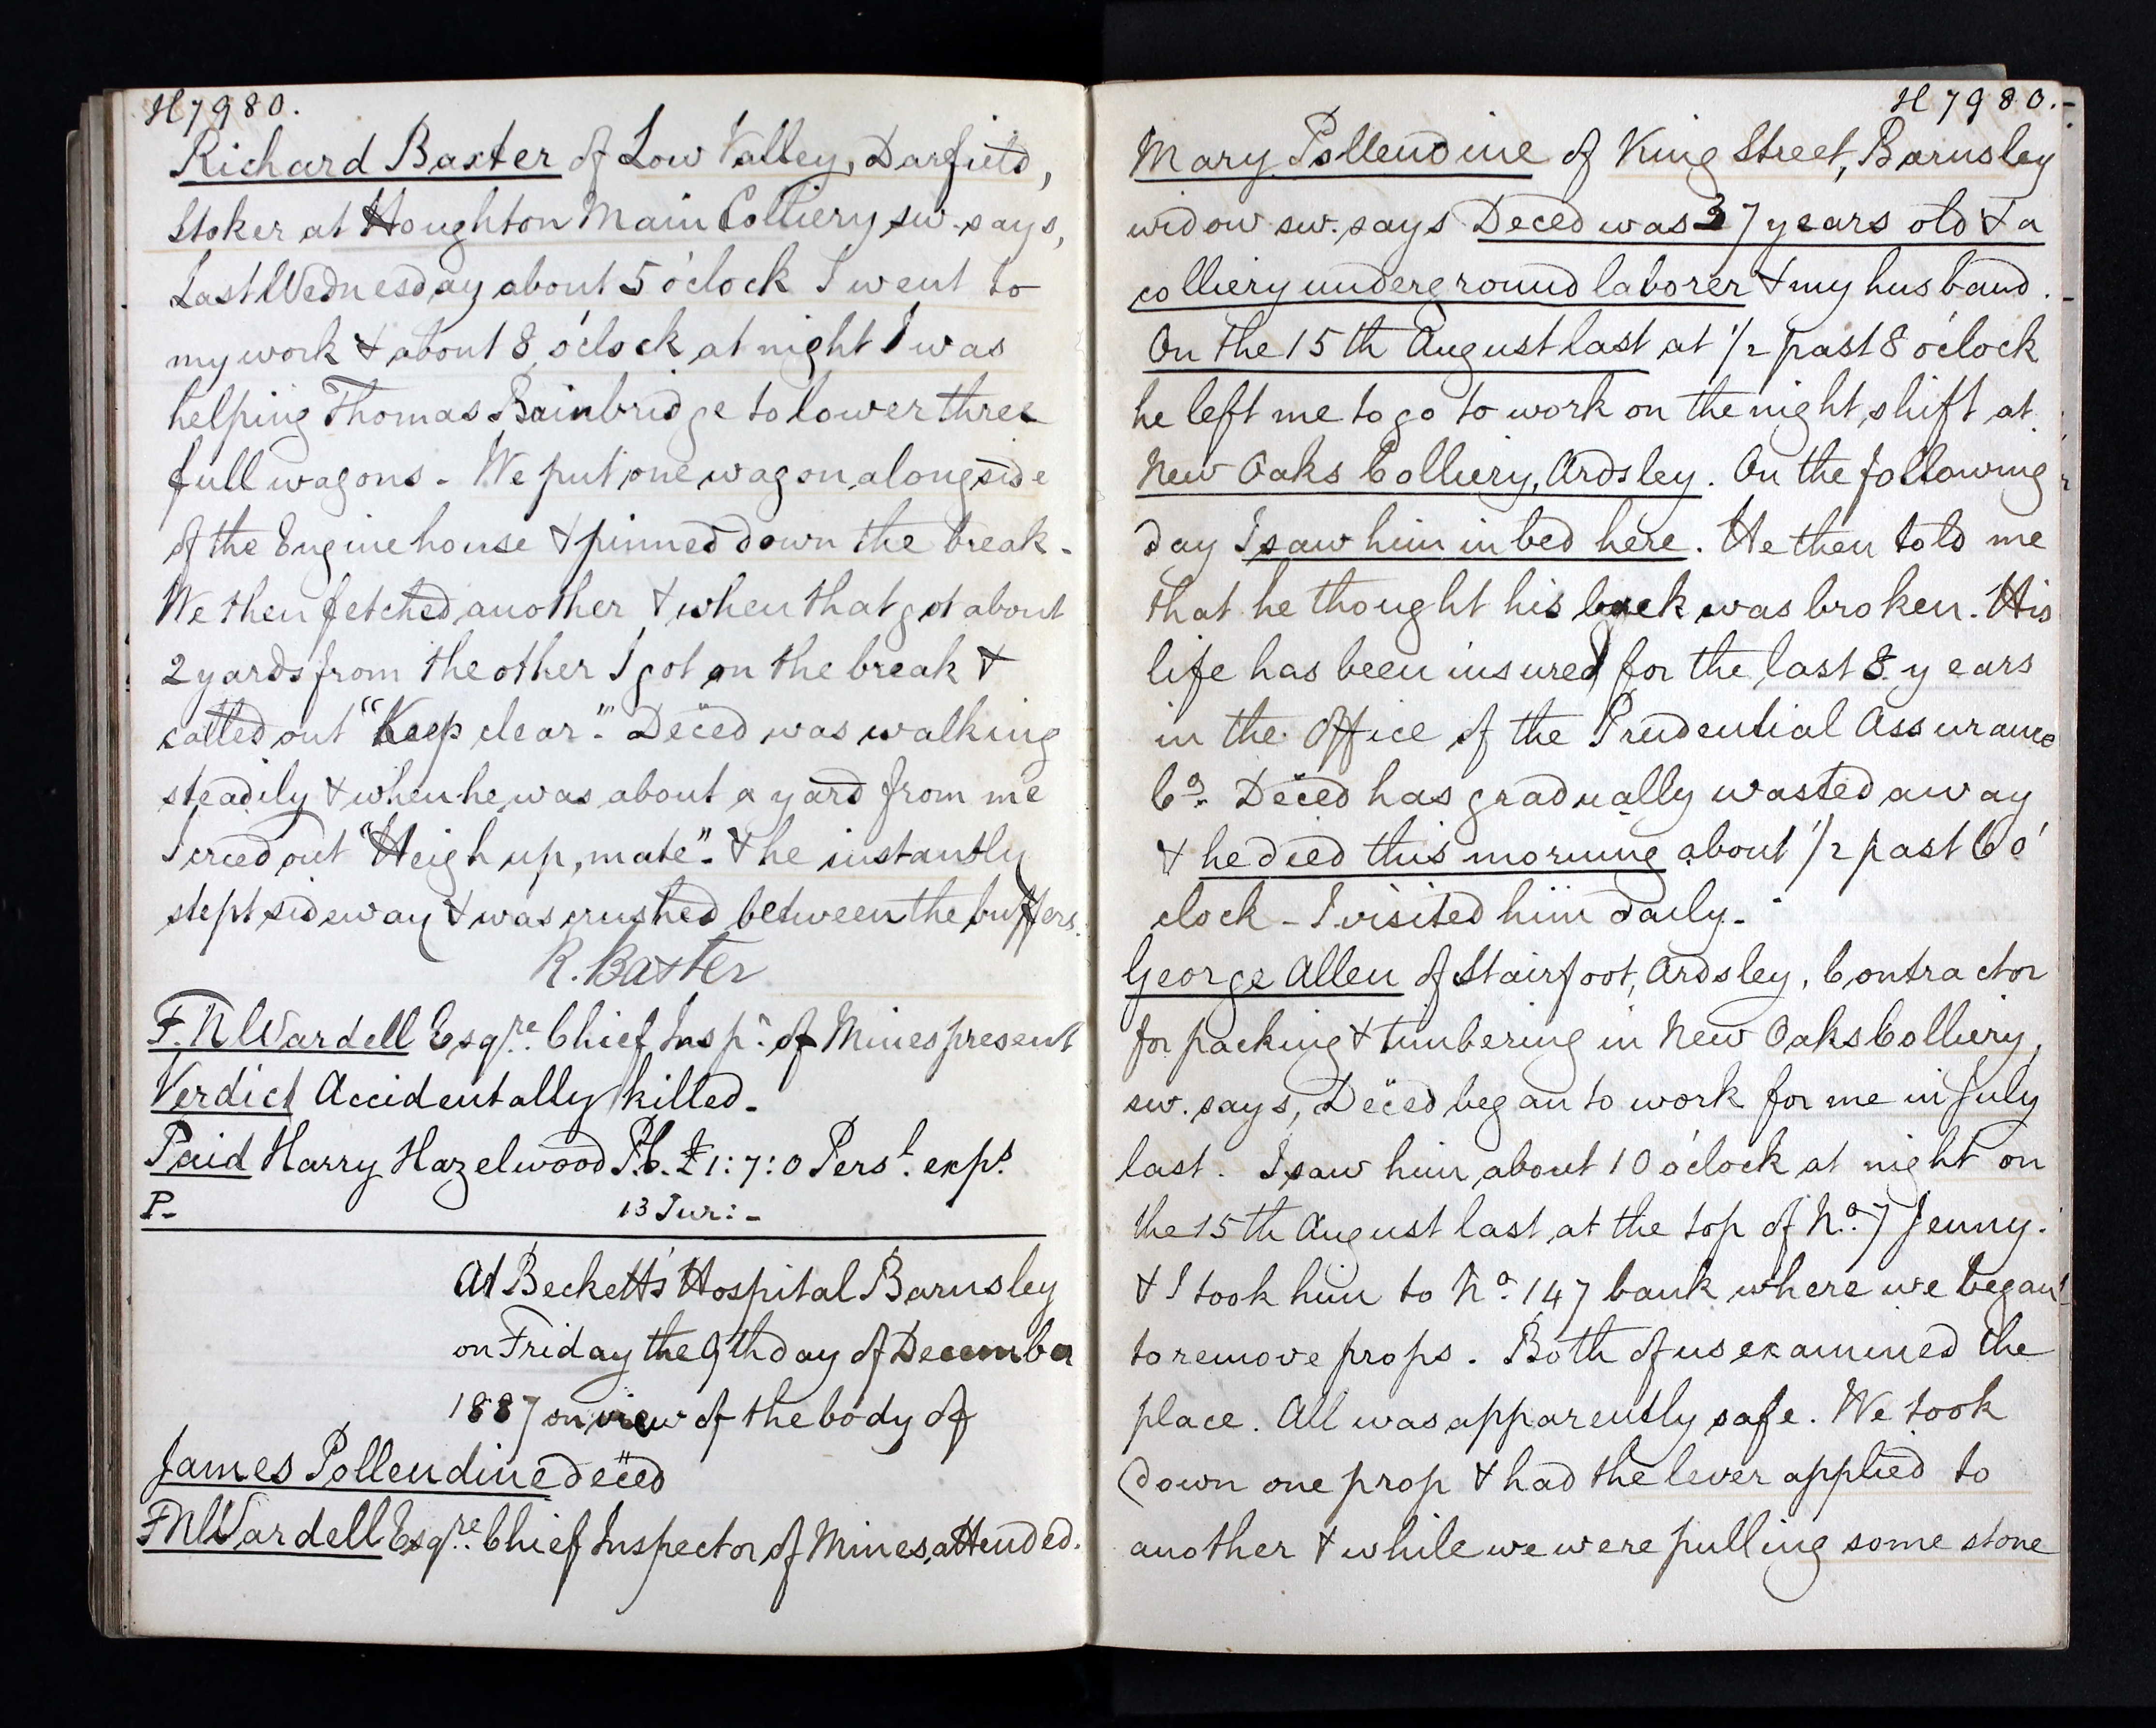 H7980.
Richard Baxter of Low Valley, Darfield,
Stoker at Houghton Main Colliery sw. says,
Last Wednesday about 5 o'clock I went to
my work & about 8 o'clock at night I was
helping Thomas Bainbridge to lower three
full wagons - We put one wagon alongside
of the Engine house & pinned down the break -
We then fetched another & when that got about
2 yards from the other I got on the break &
called out "Keep clear". Deced was walking
steadily & when he was about a yard from me
I cried out "Heigh up, mate". & he instantly
stept sideway & was crushed between the buffers.
R. Baxter
F. N Wardell Esqre. Chief Inspr. of Mines present
Verdict Accidentally killed -
Paid Harry Hazelwood P.C. £1:7:0 Persl. exps.
P- 13 Jur: -
At Beckett's Hospital Barnsley
on Friday the 9th day of December
1887 on view of the body of
James Pollendine deced
F N Wardell Esqre. Chief Inspector of Mines, attended.
H7980. -
Mary Pollendine of King Street, Barnsley
widow sw. says Deced was 37 years old & a
colliery underground laborer & my husband.
On the 15th August last at 1/2 past 8 o'clock
he left me to go to work on the night shift at
New Oaks Colliery, Ardsley. On the following
day I saw him in bed here. He then told me
that he thought his back was broken. His
life has been insured for the last 8 years
in the Office of the Prudential Assurance
Co. Deced has gradually wasted away
& he died this morning about 1/2 past 6 o'
clock - I visited him daily -
George Allen of Stairfoot, Ardsley, Contractor
for packing & timbering in New Oaks Colliery,
sw. says, Deced began to work for me in July
last. I saw him about 10 o'clock at night on
the 15th August last at the top of No. 7 Jenny.
& I took him to No. 147 bank where we began
to remove props. Both of us examined the
place. All was apparently safe. We took
down one prop & had the lever applied to
another & while we were pulling some stone